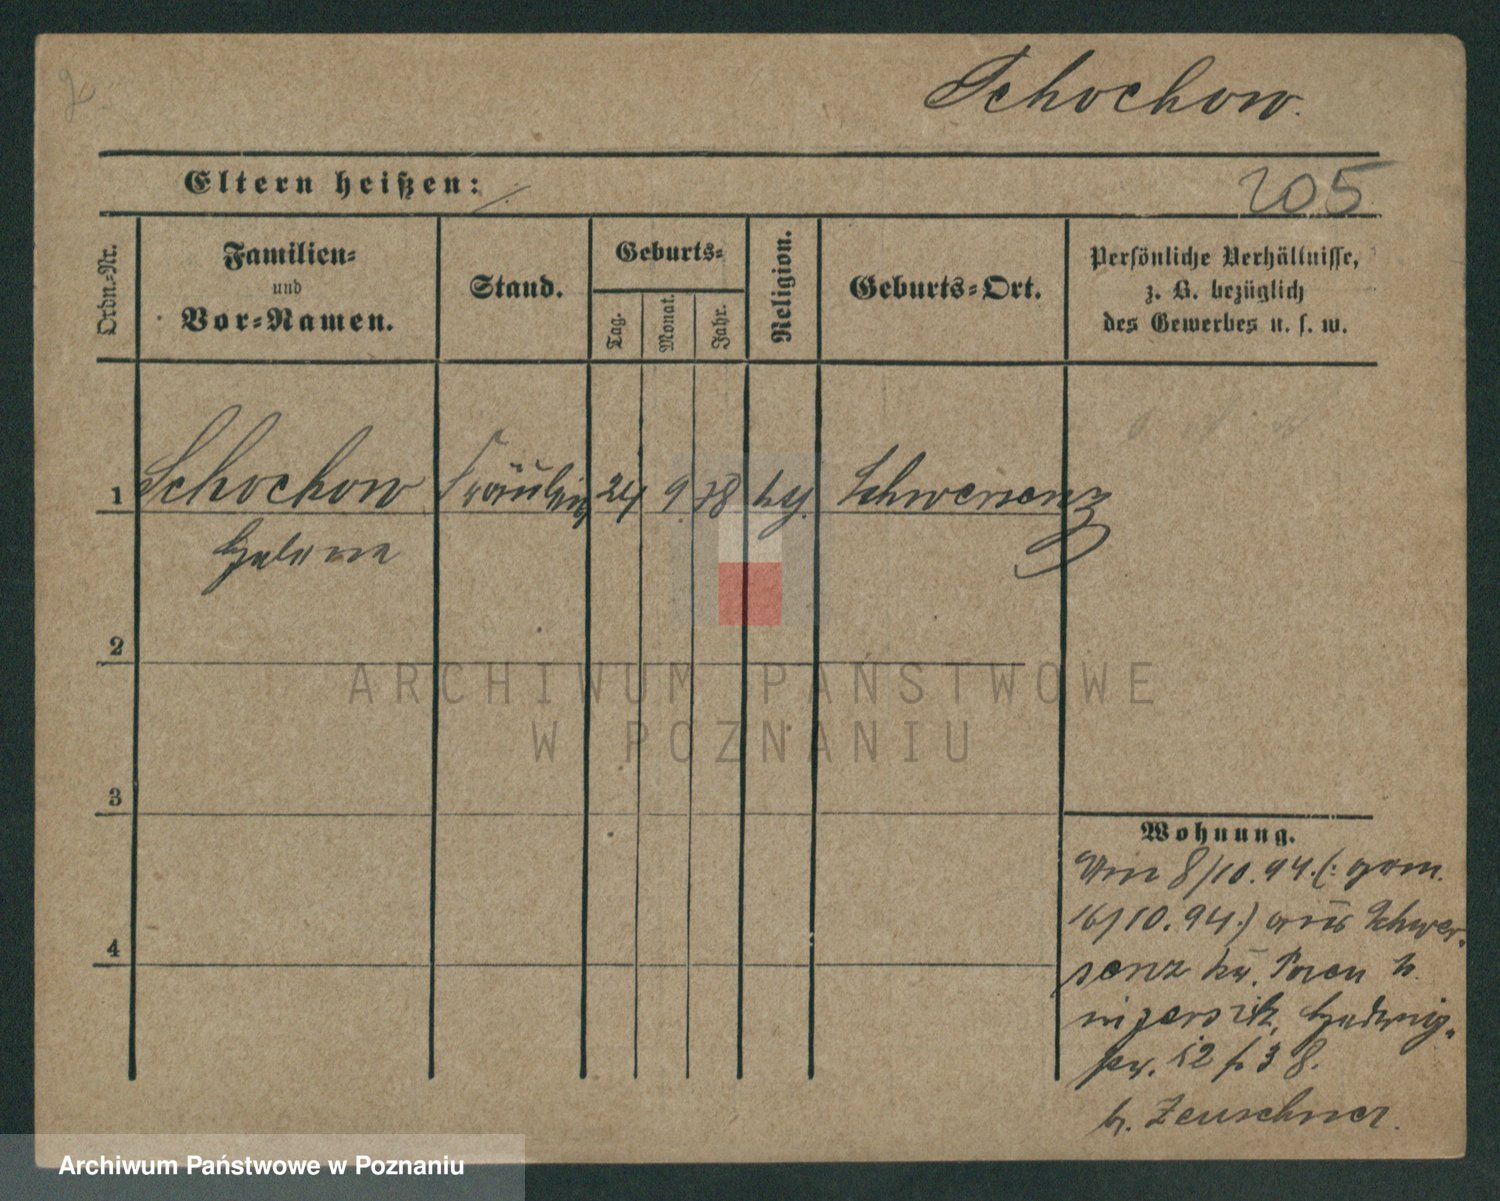 Schochow.
Eltern heißen: /.
205
Ordn.-Nr.
Familien-
und
Vor-Namen.
Stand.
Geburts-
Tag.
Monat.
Jahr.
Religion.
Geburts-Ort.
Persönliche Verhältnisse,
z. B. bezüglich
des Gewerbes u. s. w.
1 Schochow Fräulein 24 9. 78 Schwersenz
Helene
2
3
4
Wohnung.
Am 8/10. 94. (: gem.
16/10. 94.) aus Schwer-
senz Posen
Hedwig-
12 8.
b. Zeuschner.
ARCHIWUM PAŃSTWOWE
W POZNANIU
Archiwum Państwowe w Poznaniu